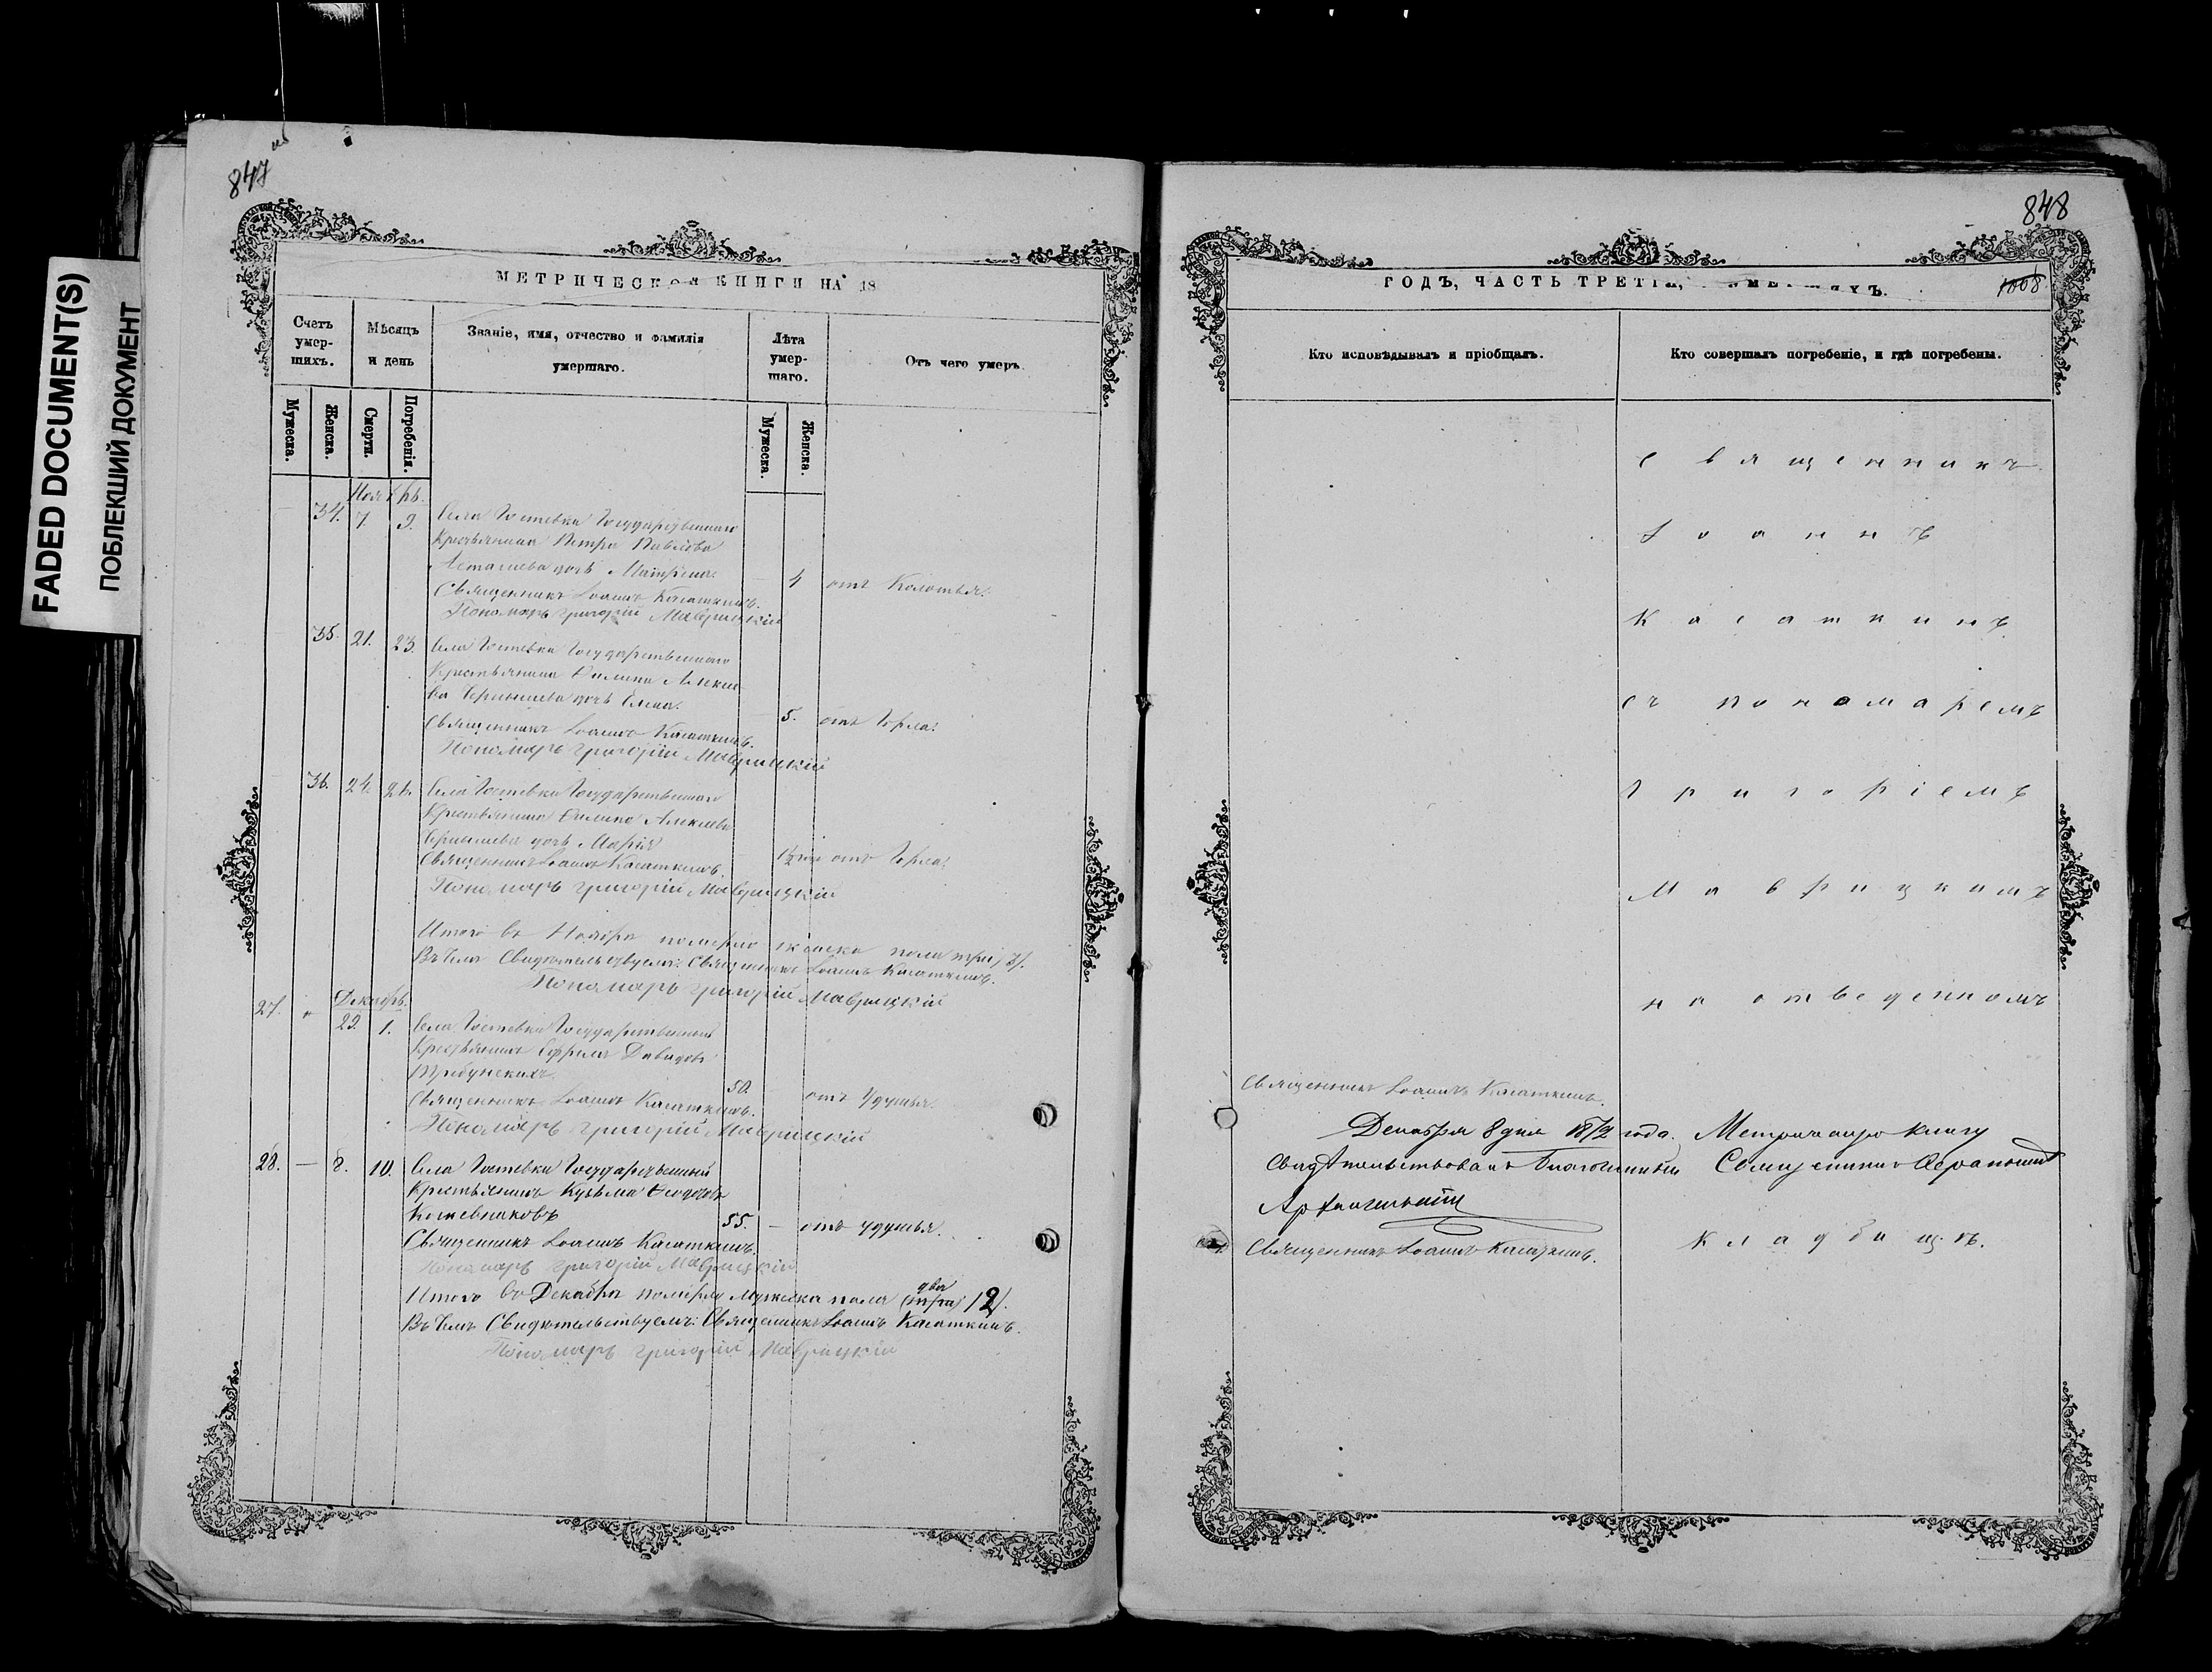 FADED DOCUMENT(S)
ПОБЛЕКШИЙ ДОКУМЕНТ
847
МЕТРИЧЕСКОЙ КНИГИ НА 18
Счетъ умер-шихъ.
Мѣсяцъ и день
Званіе, имя, отчество и фамилія умершаго.
Лѣта умер-шаго.
Отъ чего умеръ.
Мужеска.
Женска.
Смерти.
Погребенія.
Мужеска.
Женска.
Ноябрь.
34. 7. 9. Села Государственнаго
Крестьянина Петра Павлова
дочь Матрена.
4 отъ Колотья.
Священникъ Іоаннъ Касаткинъ.
Пономарь Григорій Маврицкій
35. 21. 23. Села Государственнаго
Крестьянина Филипа Алексе
ва Чернышева дочь Елена.
5. отъ Горла.
Священникъ Іоаннъ Касаткинъ.
Пономарь Григорій Маврицкій
36. 24. Села Государственнаго
Крестьянина Филипа Алексеева
Чернышева дочь Марія
1½ отъ Горла.
Священникъ Іоаннъ Касаткинъ.
Пономарь Григорій Маврицкій
Итого въ Ноябре померло женска пола три /3/.
Въ чемъ Свидетельствуемъ: Священникъ Іоаннъ Касаткинъ.
Пономарь Григорій Маврицкій
Декабрь.
27. 29. 1. Села Государственный
Крестьянинъ Ефремъ Давидовъ
Трибунскихъ.
50. отъ Удушья.
Священникъ Іоаннъ Касаткинъ.
Пономарь Григорій Маврицкій
28. — 8. 10. Села Государственный
Крестьянинъ Кузьма Феодоровъ
Кожевниковъ
55. — отъ удушья.
Священникъ Іоаннъ Касаткинъ.
Пономарь Григорій Маврицкій
два
Итого въ Декабре померло мужеска пола (три) /2/.
Въ чемъ Свидетельствуемъ: Священникъ Іоаннъ Касаткинъ.
Пономарь Григорій Маврицкій
848
1068
ГОДЪ, ЧАСТЬ ТРЕТІЯ,
Кто исповѣдывалъ и пріобщалъ.
Кто совершалъ погребеніе, и гдѣ погребены.
Священникъ
Іоаннъ
Касаткинъ
съ пономаремъ
Григоріемъ
Маврицкимъ
на отведенномъ
Священникъ Іоаннъ Касаткинъ.
Декабря 8 дня 1872 года. Метрическую книгу
Свидѣтельствовалъ Благочинный Священникъ
Архангельскій
Священникъ Іоаннъ Касаткинъ.
кладбищѣ.